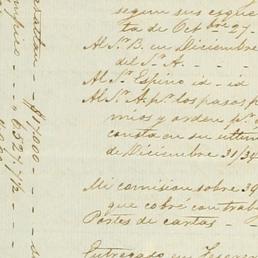 segun sus esque
ta de Oct.bre 27 -
Al S.r B. en Diciembre
del S.r A. - -
Al S.r Espino id - id
Al S.r A. p.r los pasos p
mios y orden p.r
consta en su ultim
de Diciembre 31/34
Mi comision sobre 39
que cobré con trab
Portes de cartas - -
Entregado en
$17,000
6,327,7 1/2